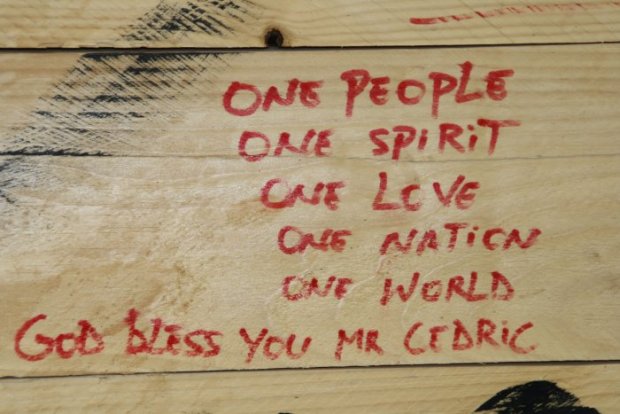 ONE PEOPLE
ONE SPiRiT
ONE LOVE
ONE NATiON
ONE WORLD
GOD bLESS YOU MR CEDRiC